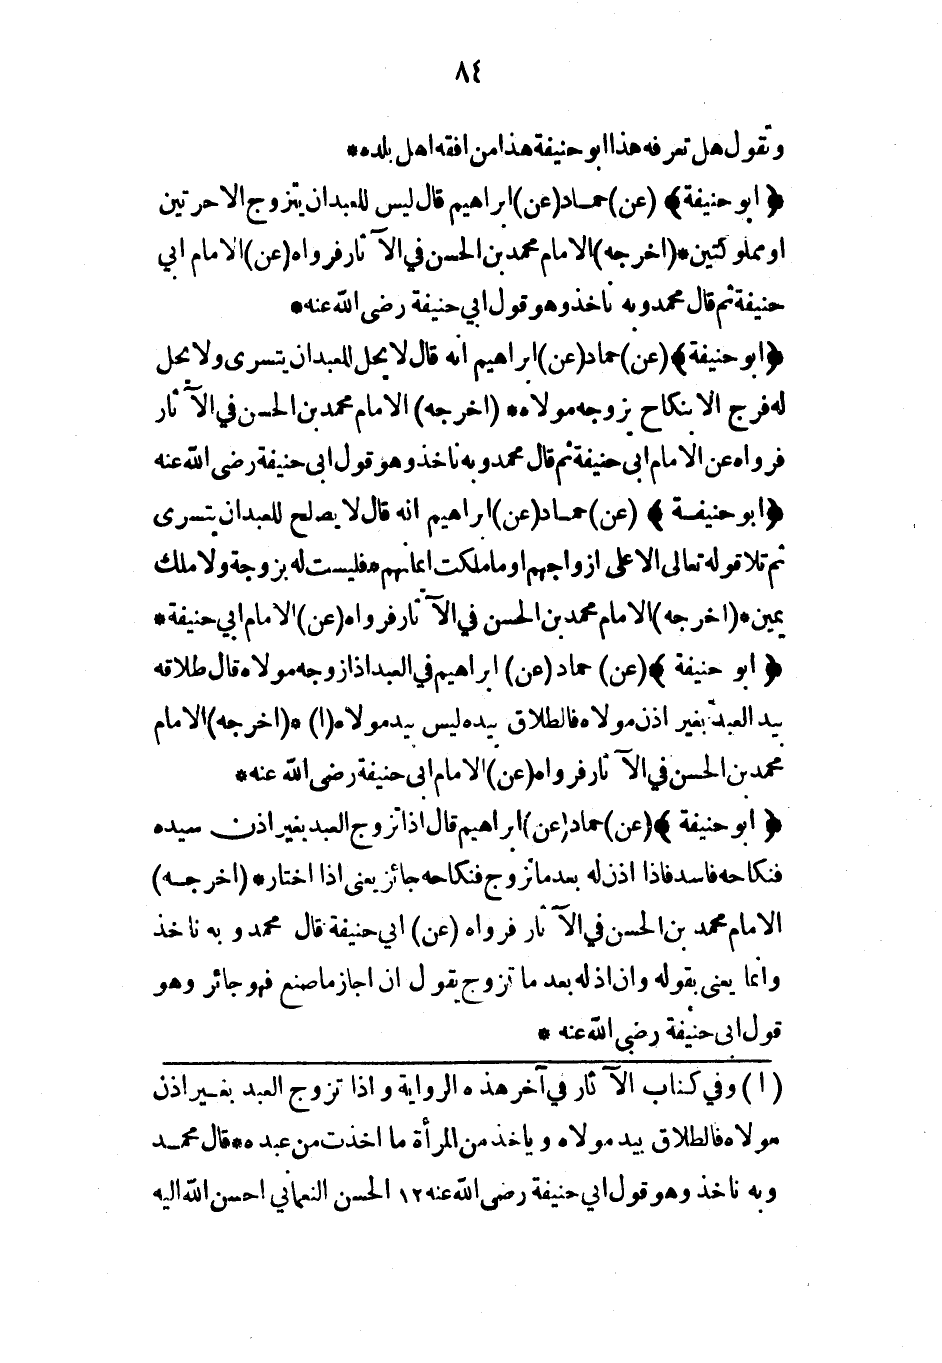 ٨٤
وتقول هل تعرفه هذا ابو حنيفة هذا من افقه اهل بلده*
﴿ ابو حنيفة﴾ (عن) حماد (عن) ابراهيم قال ليس للعبد ان يتزوج الا حرتين
او مملوكتين*(اخرجه) الامام محمد بن الحسن في الآثار فرواه (عن) الامام ابي
حنيفة ثم قال محمد وبه ناخذ وهو قول ابي حنيفة رضى الله عنه*
﴿ابو حنيفة﴾ (عن) حماد (عن) ابراهيم انه قال لا يحل للعبد ان يتسرى ولا يحل
له فرج الا بنكاح يزوجه مولاه* (اخرجه) الامام محمد بن الحسن في الآثار
فرواه عن الامام ابي حنيفة ثم قال محمد وبه ناخذ وهو قول ابى حنيفة رضى الله عنه
﴿ابو حنيفة ﴾ (عن) حماد (عن) ابراهيم انه قال لا يصلح للعبد ان يتسرى
ثم تلا قوله تعالى الا على ازواجهم او ما ملكت ايمانهم* فليست له بزوجة ولا ملك
يمين*(اخرجه) الامام محمد بن الحسن في الآثار فرواه (عن) الامام ابي حنيفة*
﴿ ابو حنيفة ﴾(عن) حماد (عن) ابراهيم في العبد اذا زوجه مولاه قال طلاقه
بيد العبد بغير اذن مولاه فالطلاق بيده ليس بيد مولاه (١) *(اخرجه) الامام
محمد بن الحسن في الآثار فرواه (عن) الامام ابى حنيفة رضى الله عنه*
﴿ ابو حنيفة ﴾(عن) حماد (عن) ابراهيم قال اذا تزوج العبد بغير اذن سيده
فنكاحه فاسد فاذا اذن له بعد ما تزوج فنكاحه جائز يعنى اذا اختار* (اخرجه)
الامام محمد بن الحسن في الآثار فرواه (عن) ابي حنيفة قال محمد و به ناخذ
وانما يعنى بقوله وان اذ له بعد ما تزوج يقول ان اجاز ما صنع فهو جائز وهو
قول ابى حنيفة رضى الله عنه *
(١) وفي كتاب الآثار في آخر هذه الرواية و اذا تزوج العبد بغير اذن
مولاه فالطلاق بيد مولاه و ياخذ من المرأة ما اخذت من عبده* قال محمد
وبه ناخذ وهو قول ابي حنيفة رضى الله عنه ١٢ الحسن النعماني احسن الله اليه